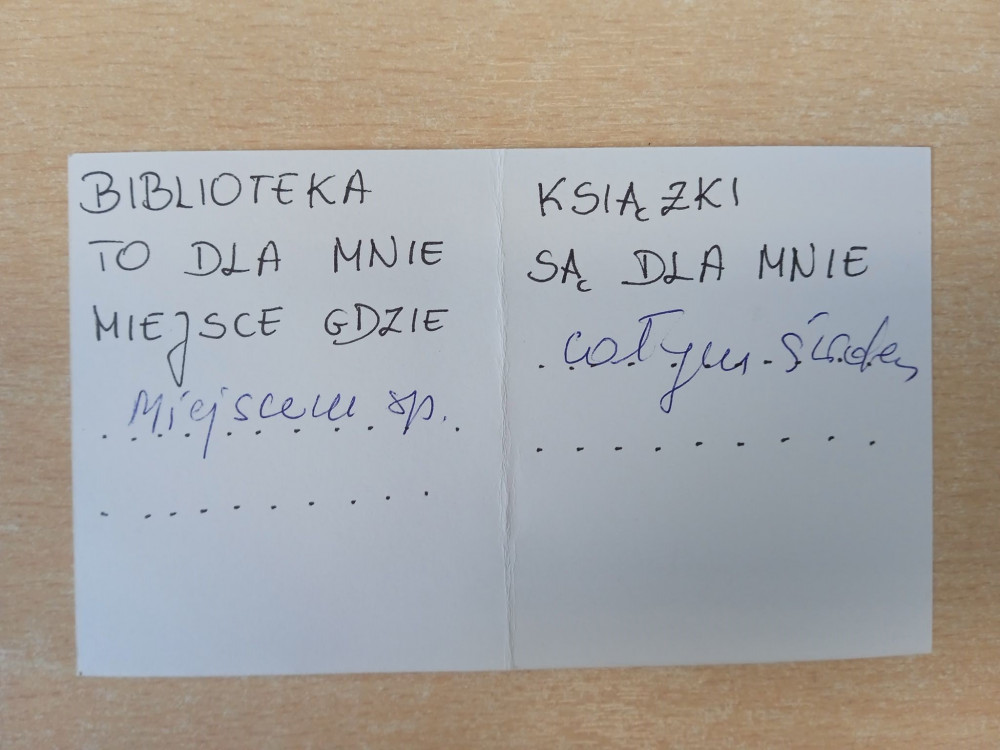 BIBLIOTEKA
TO DLA MNIE
MIEJSCE GDZIE
Miejscem sp.
KSIĄZKI
SĄ DLA MNIE
całym